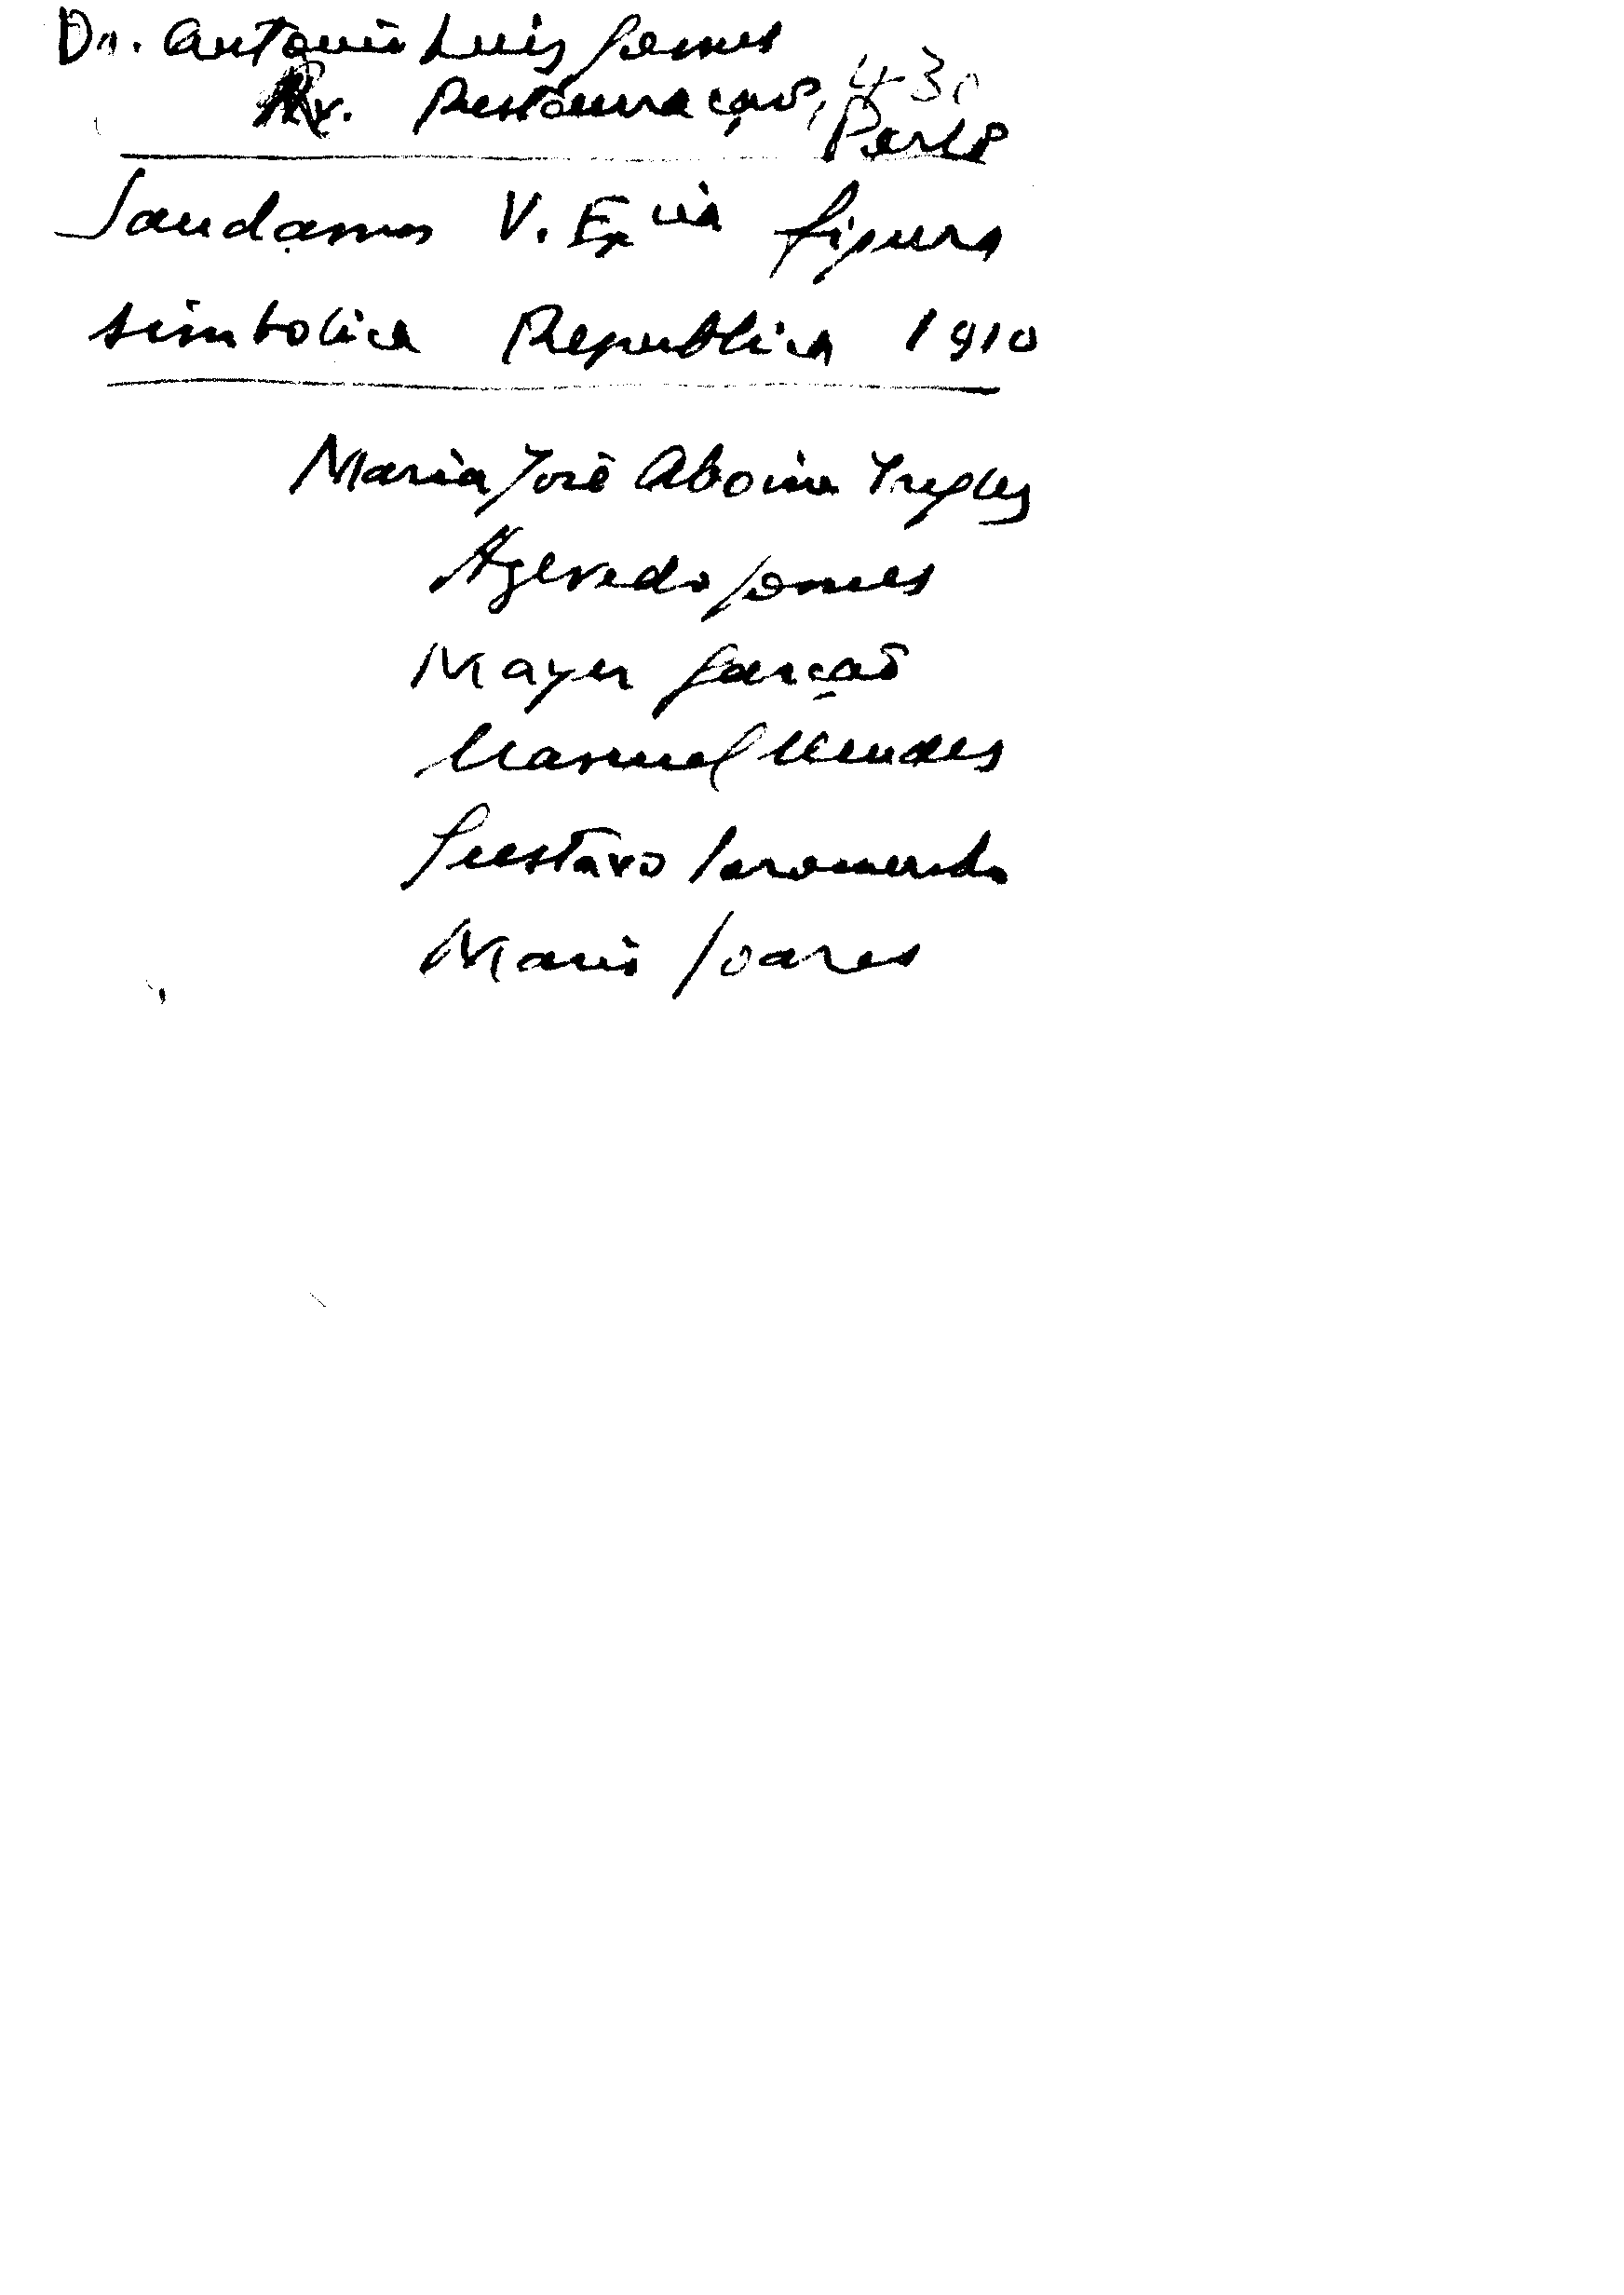 Dr. Antonio Luis Gomes
Av. Restauração, 430
Porto
Saudamos V. Excia figura
simbolica Republica 1910
Maria José Aboim Ingles
Azevedo Gomes
Mayer Garção
Manuel Mendes
Gustavo Soromenho
Mario Soares